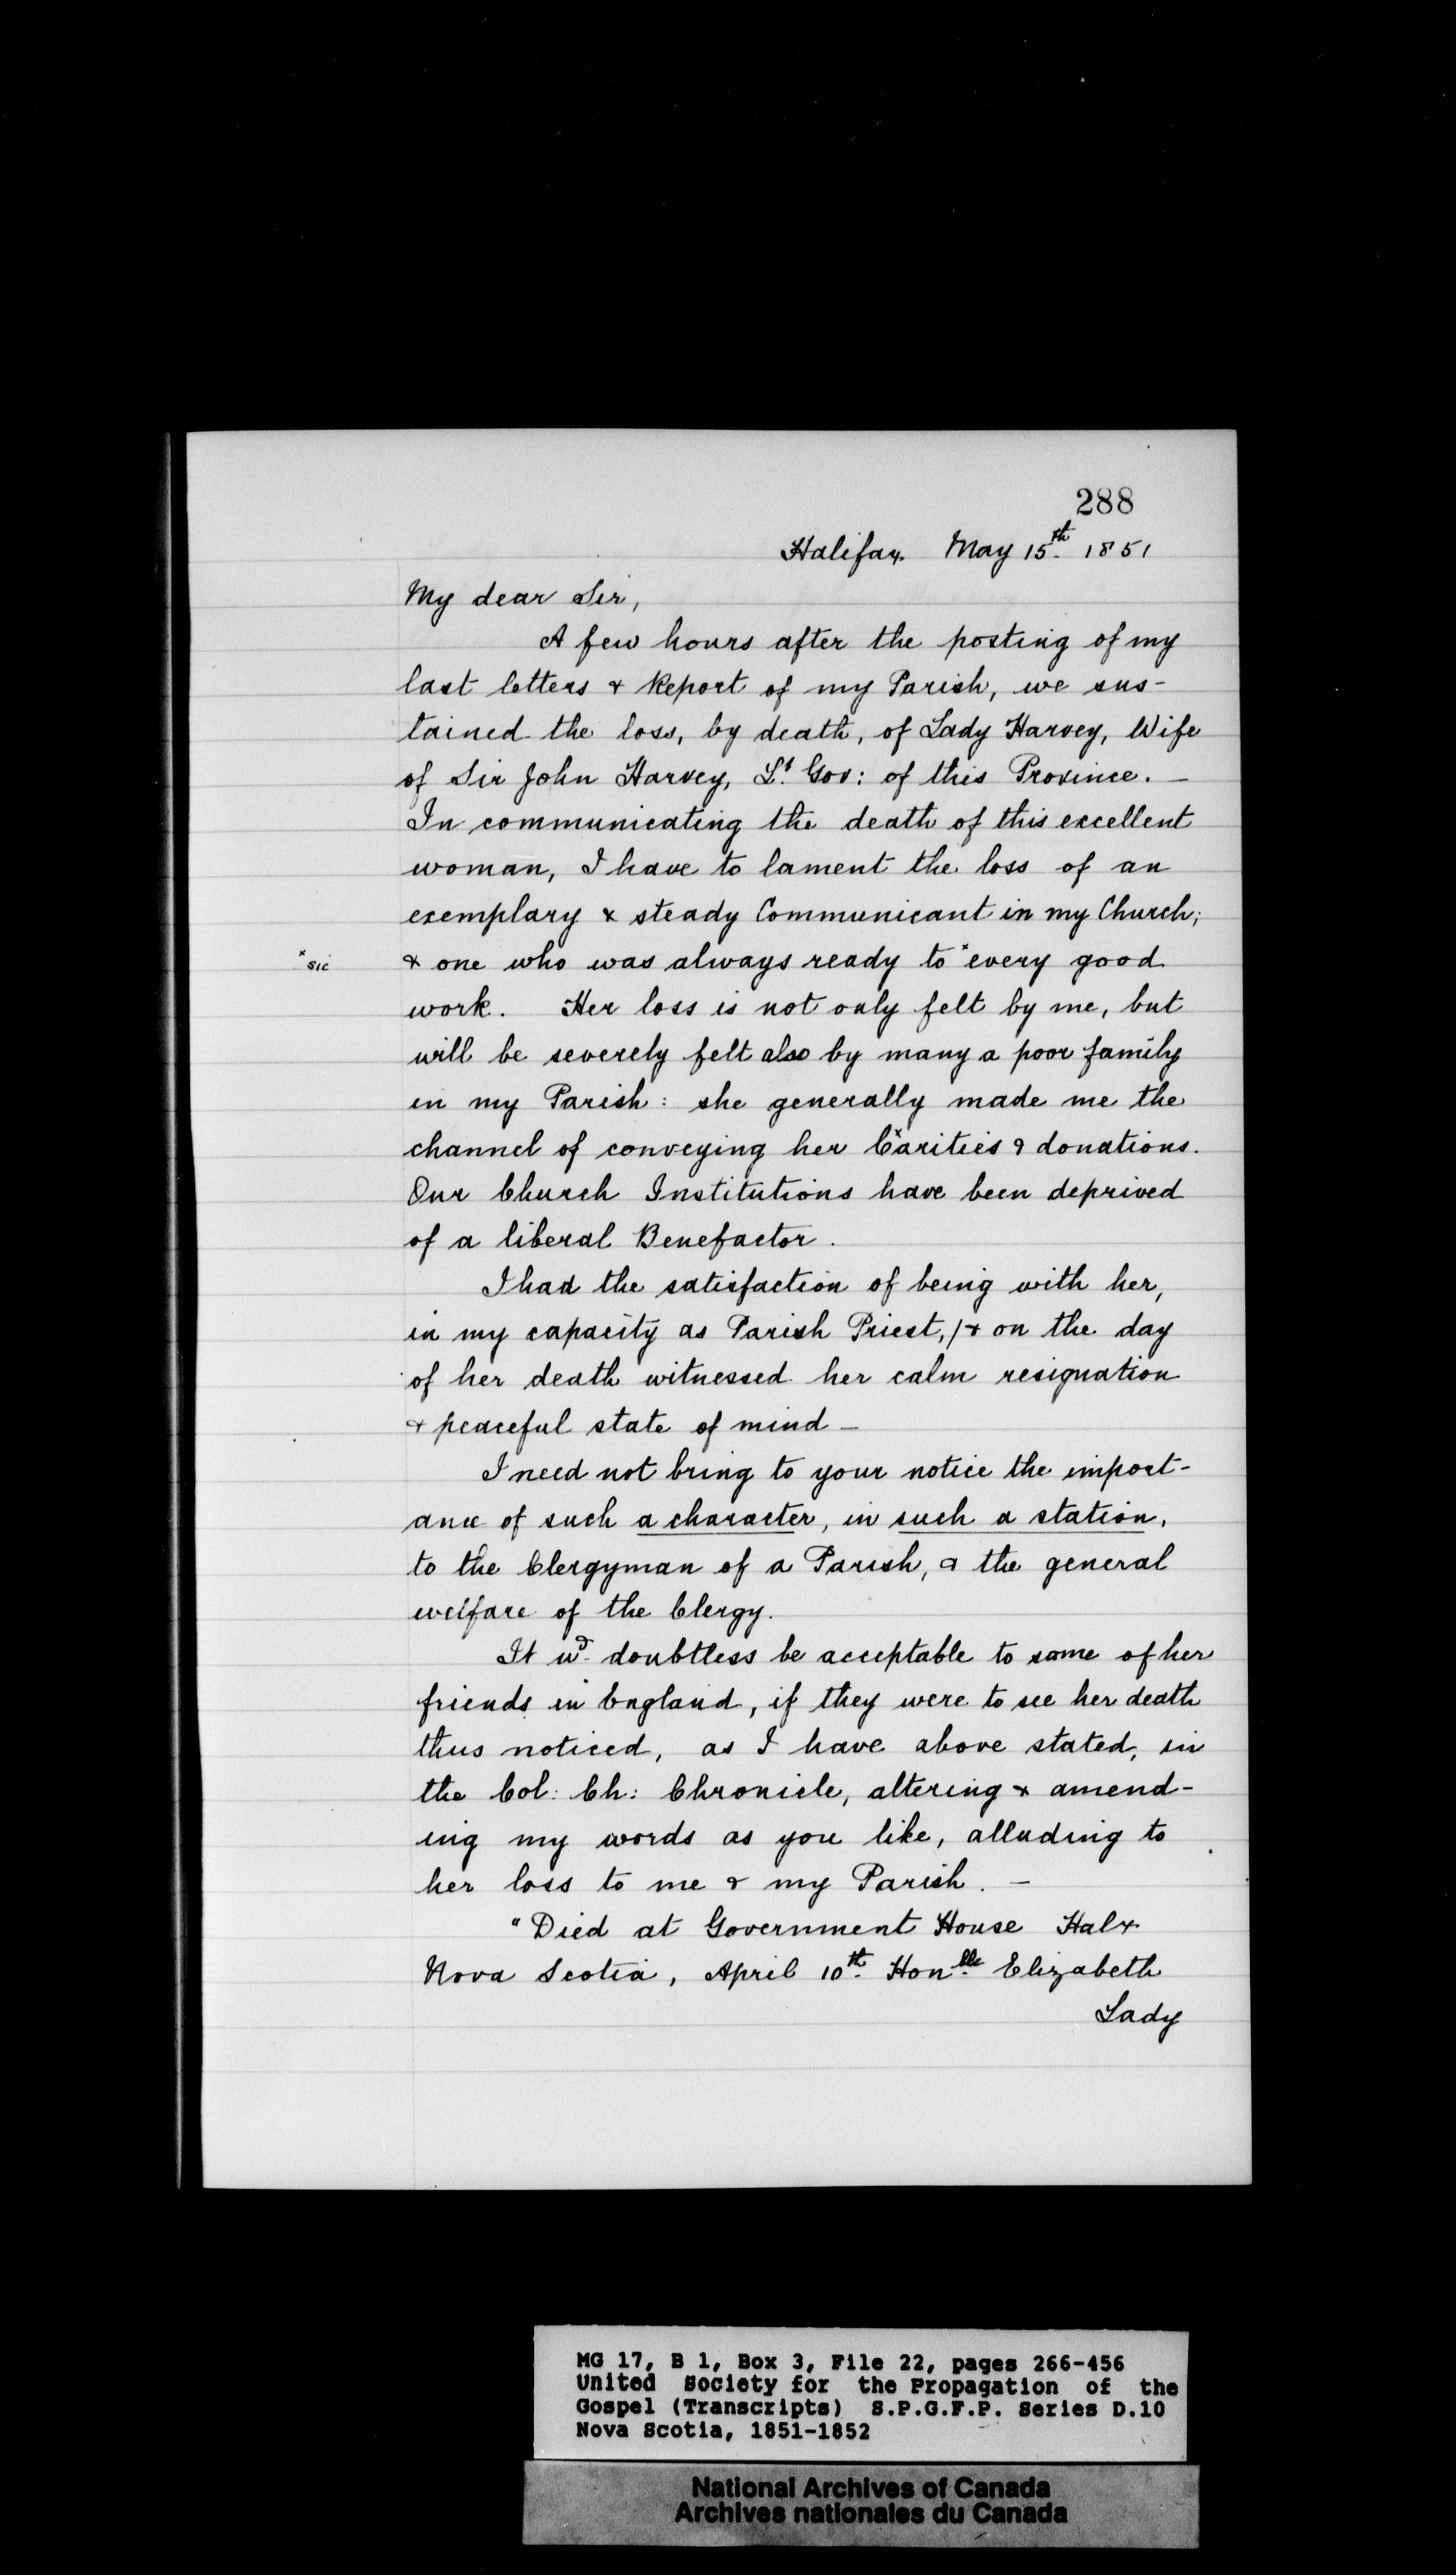 288
Halifax May 15th 1851
My dear Sir,
A few hours after the posting of my
last letters & Report of my Parish, we sus-
tained the loss, by death, of Lady Harvey, Wife
of Sir John Harvey, Lt. Gov: of this Province. —
In communicating the death of this excellent
woman, I have to lament the loss of an
exemplary & steady Communicant in my Church;
x sic & one who was always ready to x every good
work. Her loss is not only felt by me, but
will be severely felt also by many a poor family
in my Parish: she generally made me the
channel of conveying her Cxarities & donations.
Our Church Institutions have been deprived
of a liberal Benefactor.
I had the satisfaction of being with her,
in my capacity as Parish Priest, /& on the day
of her death witnessed her calm resignation
& peaceful state of mind —
I need not bring to your notice the import-
ance of such a character, in such a station,
to the Clergyman of a Parish, & the general
welfare of the Clergy.
It wd. doubtless be acceptable to some of her
friends in England, if they were to see her death
thus noticed, as I have above stated, in
the Col: Ch: Chronicle, altering & amend-
ing my words as you like, alluding to
her loss to me & my Parish. —
"Died at Government House Halx
Nova Scotia, April 10th. Honble. Elizabeth
Lady
MG 17, B 1, Box 3, File 22, pages 266-456
United Society for the Propagation of the
Gospel (Transcripts) S.P.G.F.P. Series D.10
Nova Scotia, 1851-1852
National Archives of Canada
Archives nationales du Canada